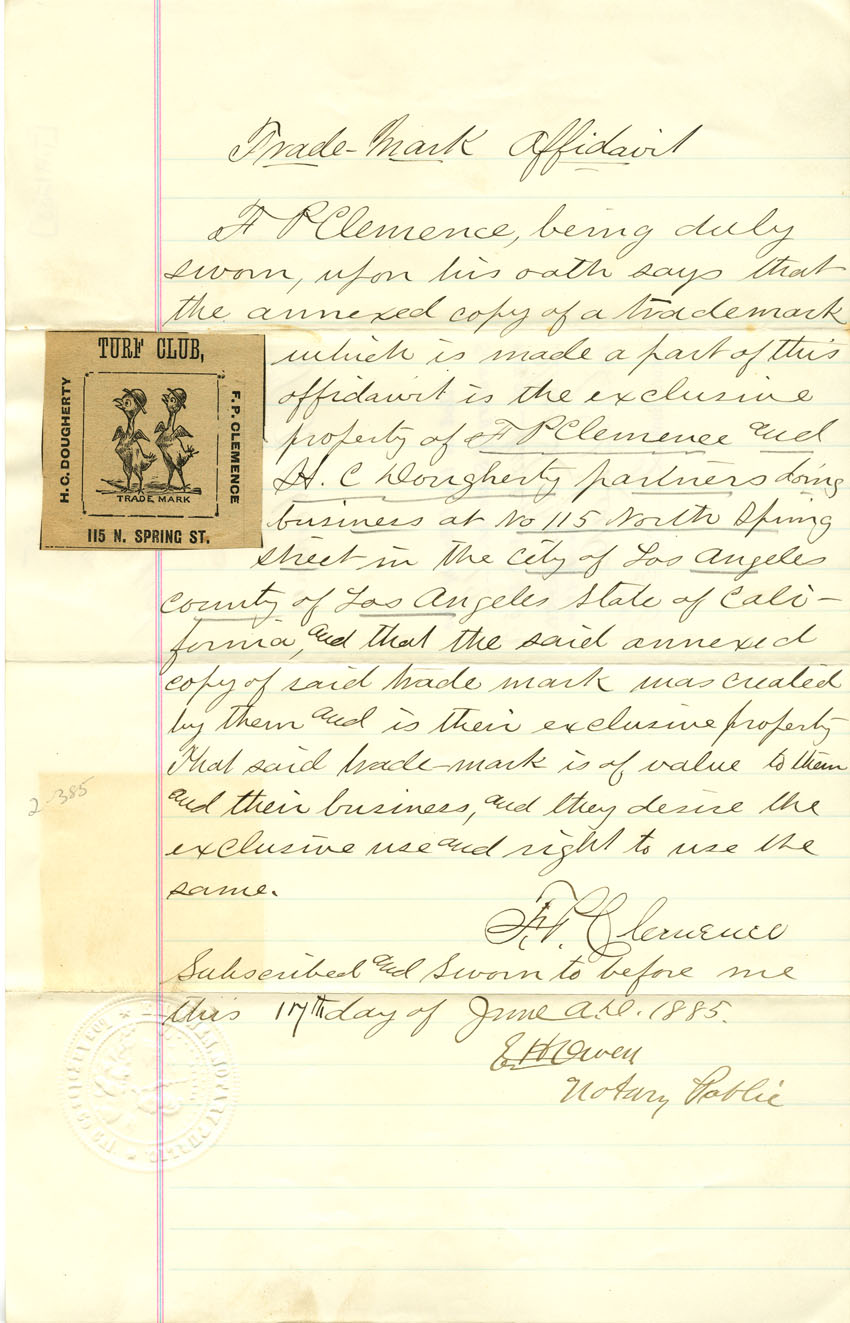 Trade-Mark Affidavit
F P Clemence, being duly
sworn, upon his oath says that
the annexed copy of a trademark
which is made a part of this
affidavit is the exclusive
property of F P Clemence and
H. C Dougherty partners doing
business at No 115 North Spring
street in the city of Los Angeles
county of Los Angeles State of Cali-
fornia, and that the said annexed
copy of said trade mark was created
by them and is their exclusive property
That said trade-mark is of value to them
and their business, and they desire the
exclusive use and right to use the
same.
F. P. Clemence
Subscribed and sworn to before me
this 17th day of June A.D. 1885.
E H Owen
Notary Public
TURF CLUB,
H.C. DOUGHERTY
F.P. CLEMENCE
TRADE MARK
115 N. SPRING ST.
2-385